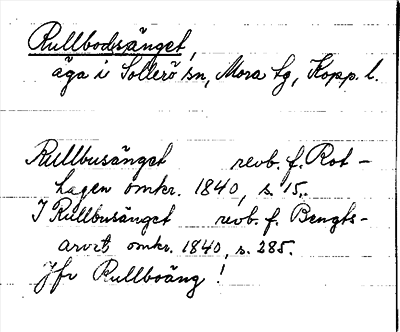 Rullbodsänget,
äga i Sollerö sn, Mora tg, Kopp. l.
Rullbusänget revb. f. Rot-
hagen omkr. 1840, s. 15.
I Rullbusänget revb. f. Bengts-
arvet omkr. 1840, s. 285.
Jfr Rullboäng!